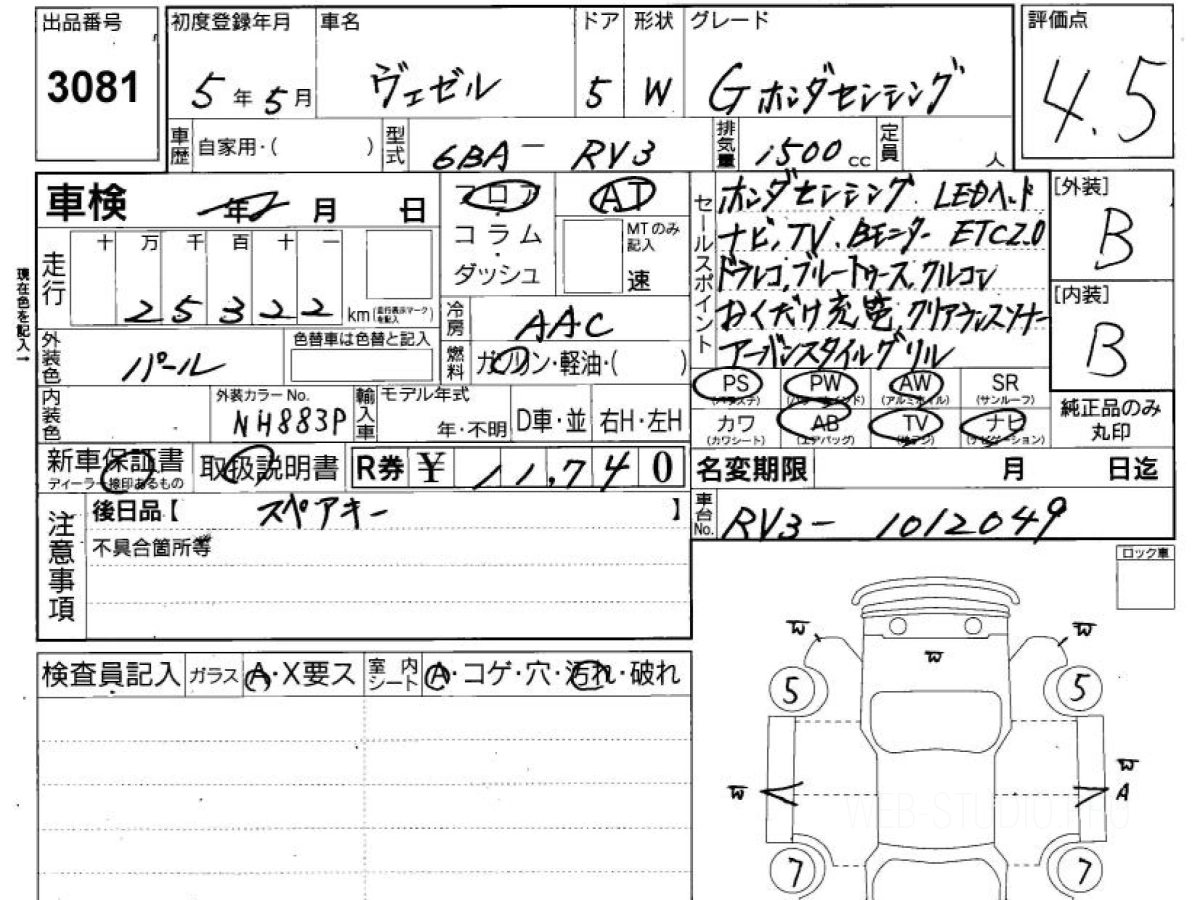 出品番号
3081
初度登録年月
5年5月
車名
ヴェゼル
ドア
5
形状
W
グレード
Gホンダセンシング
評価点
4.5
車歴 自家用・( )
型式 6BA- RV3
排気量 1500cc
定員 人
車検 年 月 日
フロア
コラム
・
ダッシュ
AT
MTのみ記入
速
セールスポイント
ホンダセンシング LEDヘッド
ナビ,TV,Bモニター ETC2.0
ドラレコ,ブルートゥース,クルコン
おくだけ充電,クリアランスソナー
アーバンスタイルグリル
[外装]
B
[内装]
B
現在色を記入→
走行
十万千百十一
25322
km (走行表示マークを記入)
外装色 パール
色替車は色替と記入
冷房 AAC
燃料 ガソリン・軽油・( )
内装色
外装カラーNo.
NH883P
輸入車
モデル年式
年・不明
D車・並
右H・左H
PS (パワステ)
PW
AW (アルミホイル)
SR (サンルーフ)
カワ (カワシート)
AB (エアバッグ)
TV
ナビ (ナビゲーション)
純正品のみ
丸印
新車保証書
ディーラー捺印あるもの
取扱説明書
R券 ¥ 11,740
名変期限 月 日迄
注意事項
後日品【 スペアキー 】
不具合箇所等
車台No. RV3- 1012049
ロック車
検査員記入
ガラス A・X要ス
室内シート A・コゲ・穴・汚れ・破れ
W
W
W
5
5
W
W
A
WEB-STUDIO.PRO
7
7